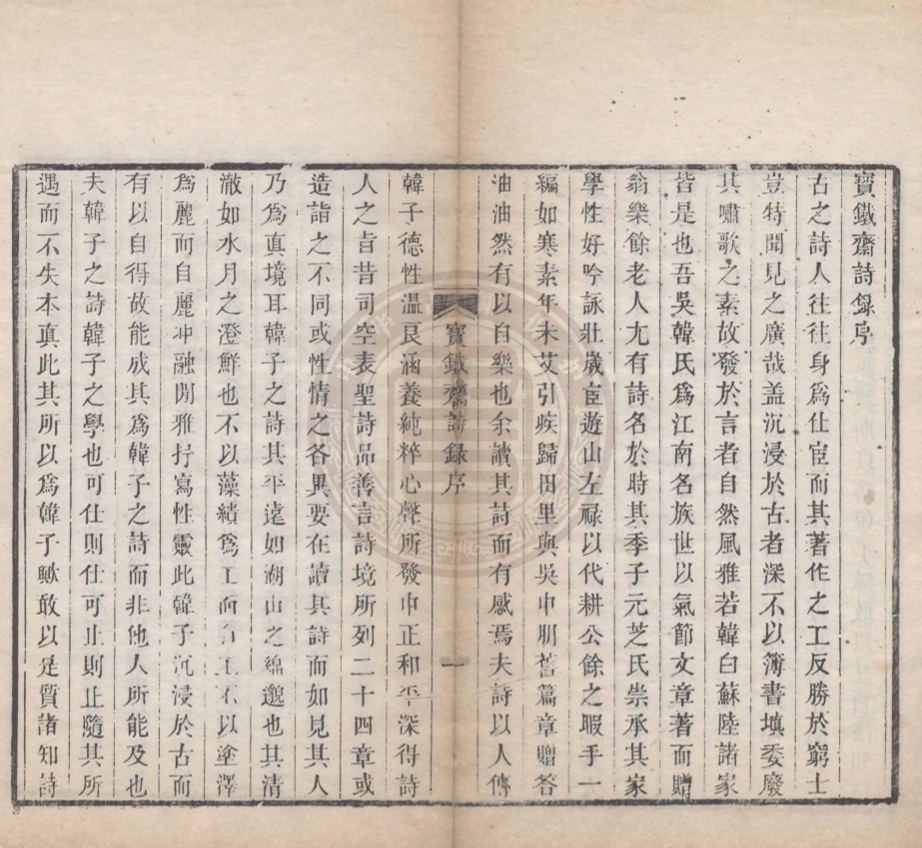 寶鐵齋詩錄序
古之詩人往往身爲仕宦而其著作之工反勝於窮士
豈特聞見之廣哉盖沉浸於古者深不以簿書填委廢
其嘯歌之素故發於言者自然風雅若韓白蘇陸諸家
皆是也吾吳韓氏爲江南名族世以氣節文章著而贈
翁樂餘老人尢有詩名於時其季子元芝氏祟承其家
學性好吟詠壯歲宦遊山左祿以代耕公餘之暇手一
編如寒素年未艾引疾歸田里與吳中朋舊篇章贈答
油油然有以自樂也余讀其詩而有感焉夫詩以人傳
寶鐵齋詩錄序
一
韓子德性溫良涵養純粹心聲所發中正和平深得詩
人之旨昔司空表聖詩品善言詩境所列二十四章或
造詣之不同或性情之各異要在讀其詩而如見其人
乃爲眞境耳韓子之詩其平遠如湖山之綿邈也其清
澈如水月之澄鮮也不以藻繢爲工而自工不以塗澤
爲麗而自麗冲融閒雅抒寫性靈此韓子沉浸於古而
有以自得故能成其爲韓子之詩而非他人所能及也
夫韓子之詩韓子之學也可仕則仕可止則止隨其所
遇而不失本真此其所以爲韓子歟敢以是質諸知詩